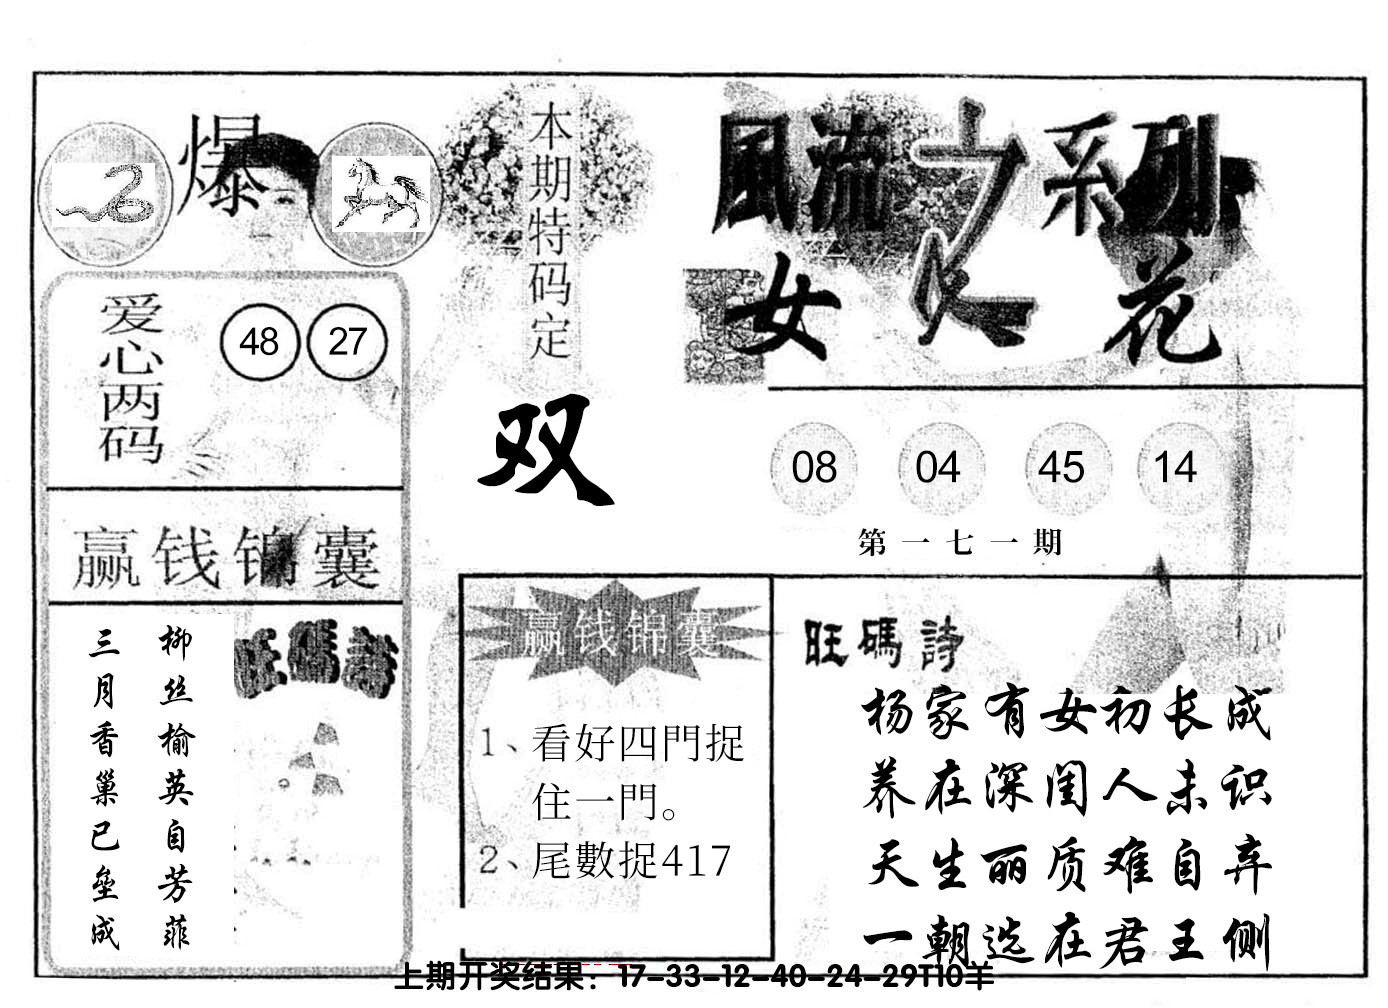 爆
本期特码定
双
風流之系列
女人花
爱心两码
48 27
08 04 45 14
第一七一期
赢钱锦囊
柳丝榆英自芳菲
三月香巢已垒成
旺碼詩
赢钱锦囊
1、看好四門捉
住一門。
2、尾數捉417
旺碼詩
杨家有女初长成
养在深闺人未识
天生丽质难自弃
一朝选在君王侧
上期开奖结果：17-33-12-40-24-29T10羊